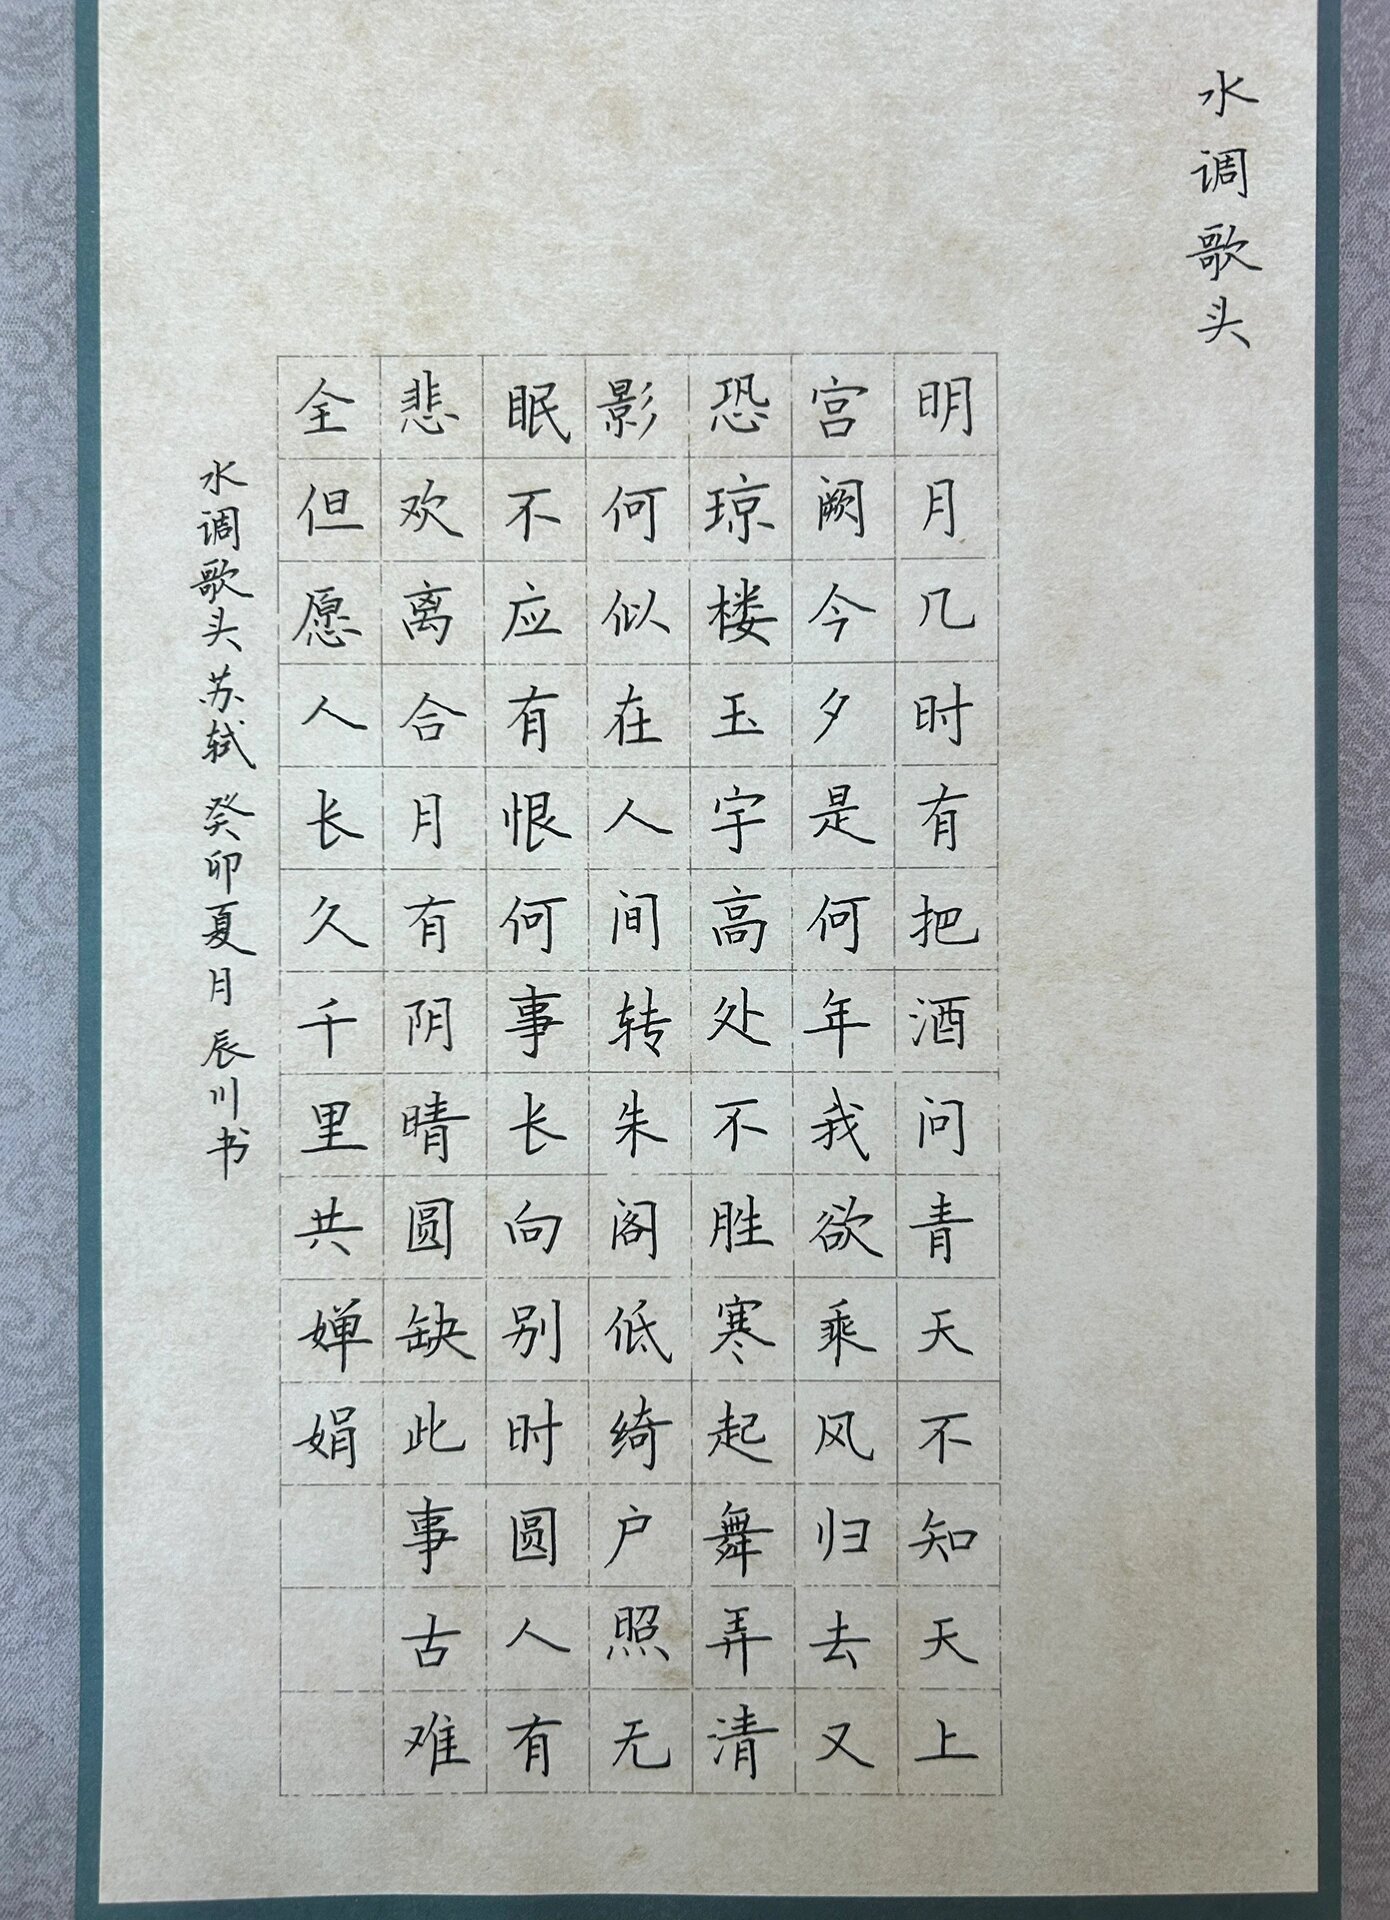 水调歌头
明月几时有把酒问青天不知天上
宫阙今夕是何年我欲乘风归去又
恐琼楼玉宇高处不胜寒起舞弄清
影何似在人间转朱阁低绮户照无
眠不应有恨何事长向别时圆人有
悲欢离合月有阴晴圆缺此事古难
全但愿人长久千里共婵娟
水调歌头苏轼癸卯夏月辰川书